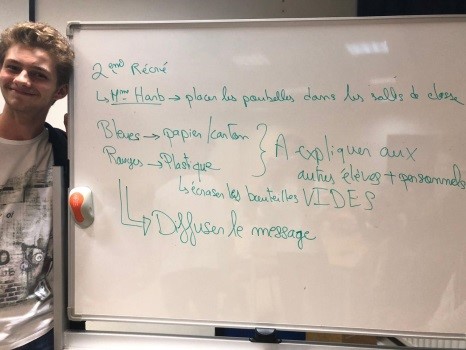 2ème Récré
↳ Mme Harb → placer les poubelles dans les salles de classe
Bleues → papier/carton
Rouges → Plastique
} A expliquer aux
autres élèves + personnels
↳ écraser les bouteilles VIDES
↳ Diffuser le message